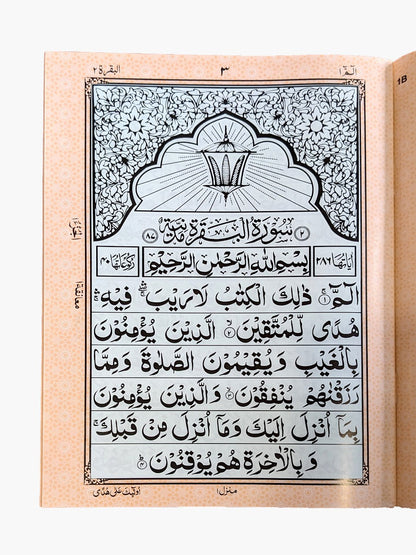 البقرة ٢
٣
الٓمّٓ ١
1B
٢ سُوْرَةُ الْبَقَرَةِ مَدَنِيَّةٌ ٨٧
اٰيَاتُهَا ٢٨٦
بِسْمِ اللّٰهِ الرَّحْمٰنِ الرَّحِيْمِ
رُكُوْعَاتُهَا ٤٠
الٓمّٓ ۚ﴿١﴾ ذٰلِكَ الْكِتٰبُ لَا رَيْبَ ۛۖ فِيْهِ ۛۚ
هُدًى لِّلْمُتَّقِيْنَ ۙ﴿٢﴾ الَّذِيْنَ يُؤْمِنُوْنَ
بِالْغَيْبِ وَيُقِيْمُوْنَ الصَّلٰوةَ وَمِمَّا
رَزَقْنٰهُمْ يُنْفِقُوْنَ ۙ﴿٣﴾ وَالَّذِيْنَ يُؤْمِنُوْنَ
بِمَاۤ اُنْزِلَ اِلَيْكَ وَمَاۤ اُنْزِلَ مِنْ قَبْلِكَ ۚ
وَبِالْاٰخِرَةِ هُمْ يُوْقِنُوْنَ ؕ﴿٤﴾
معانقة ١
منزل ١
اولٓئك على هدًى